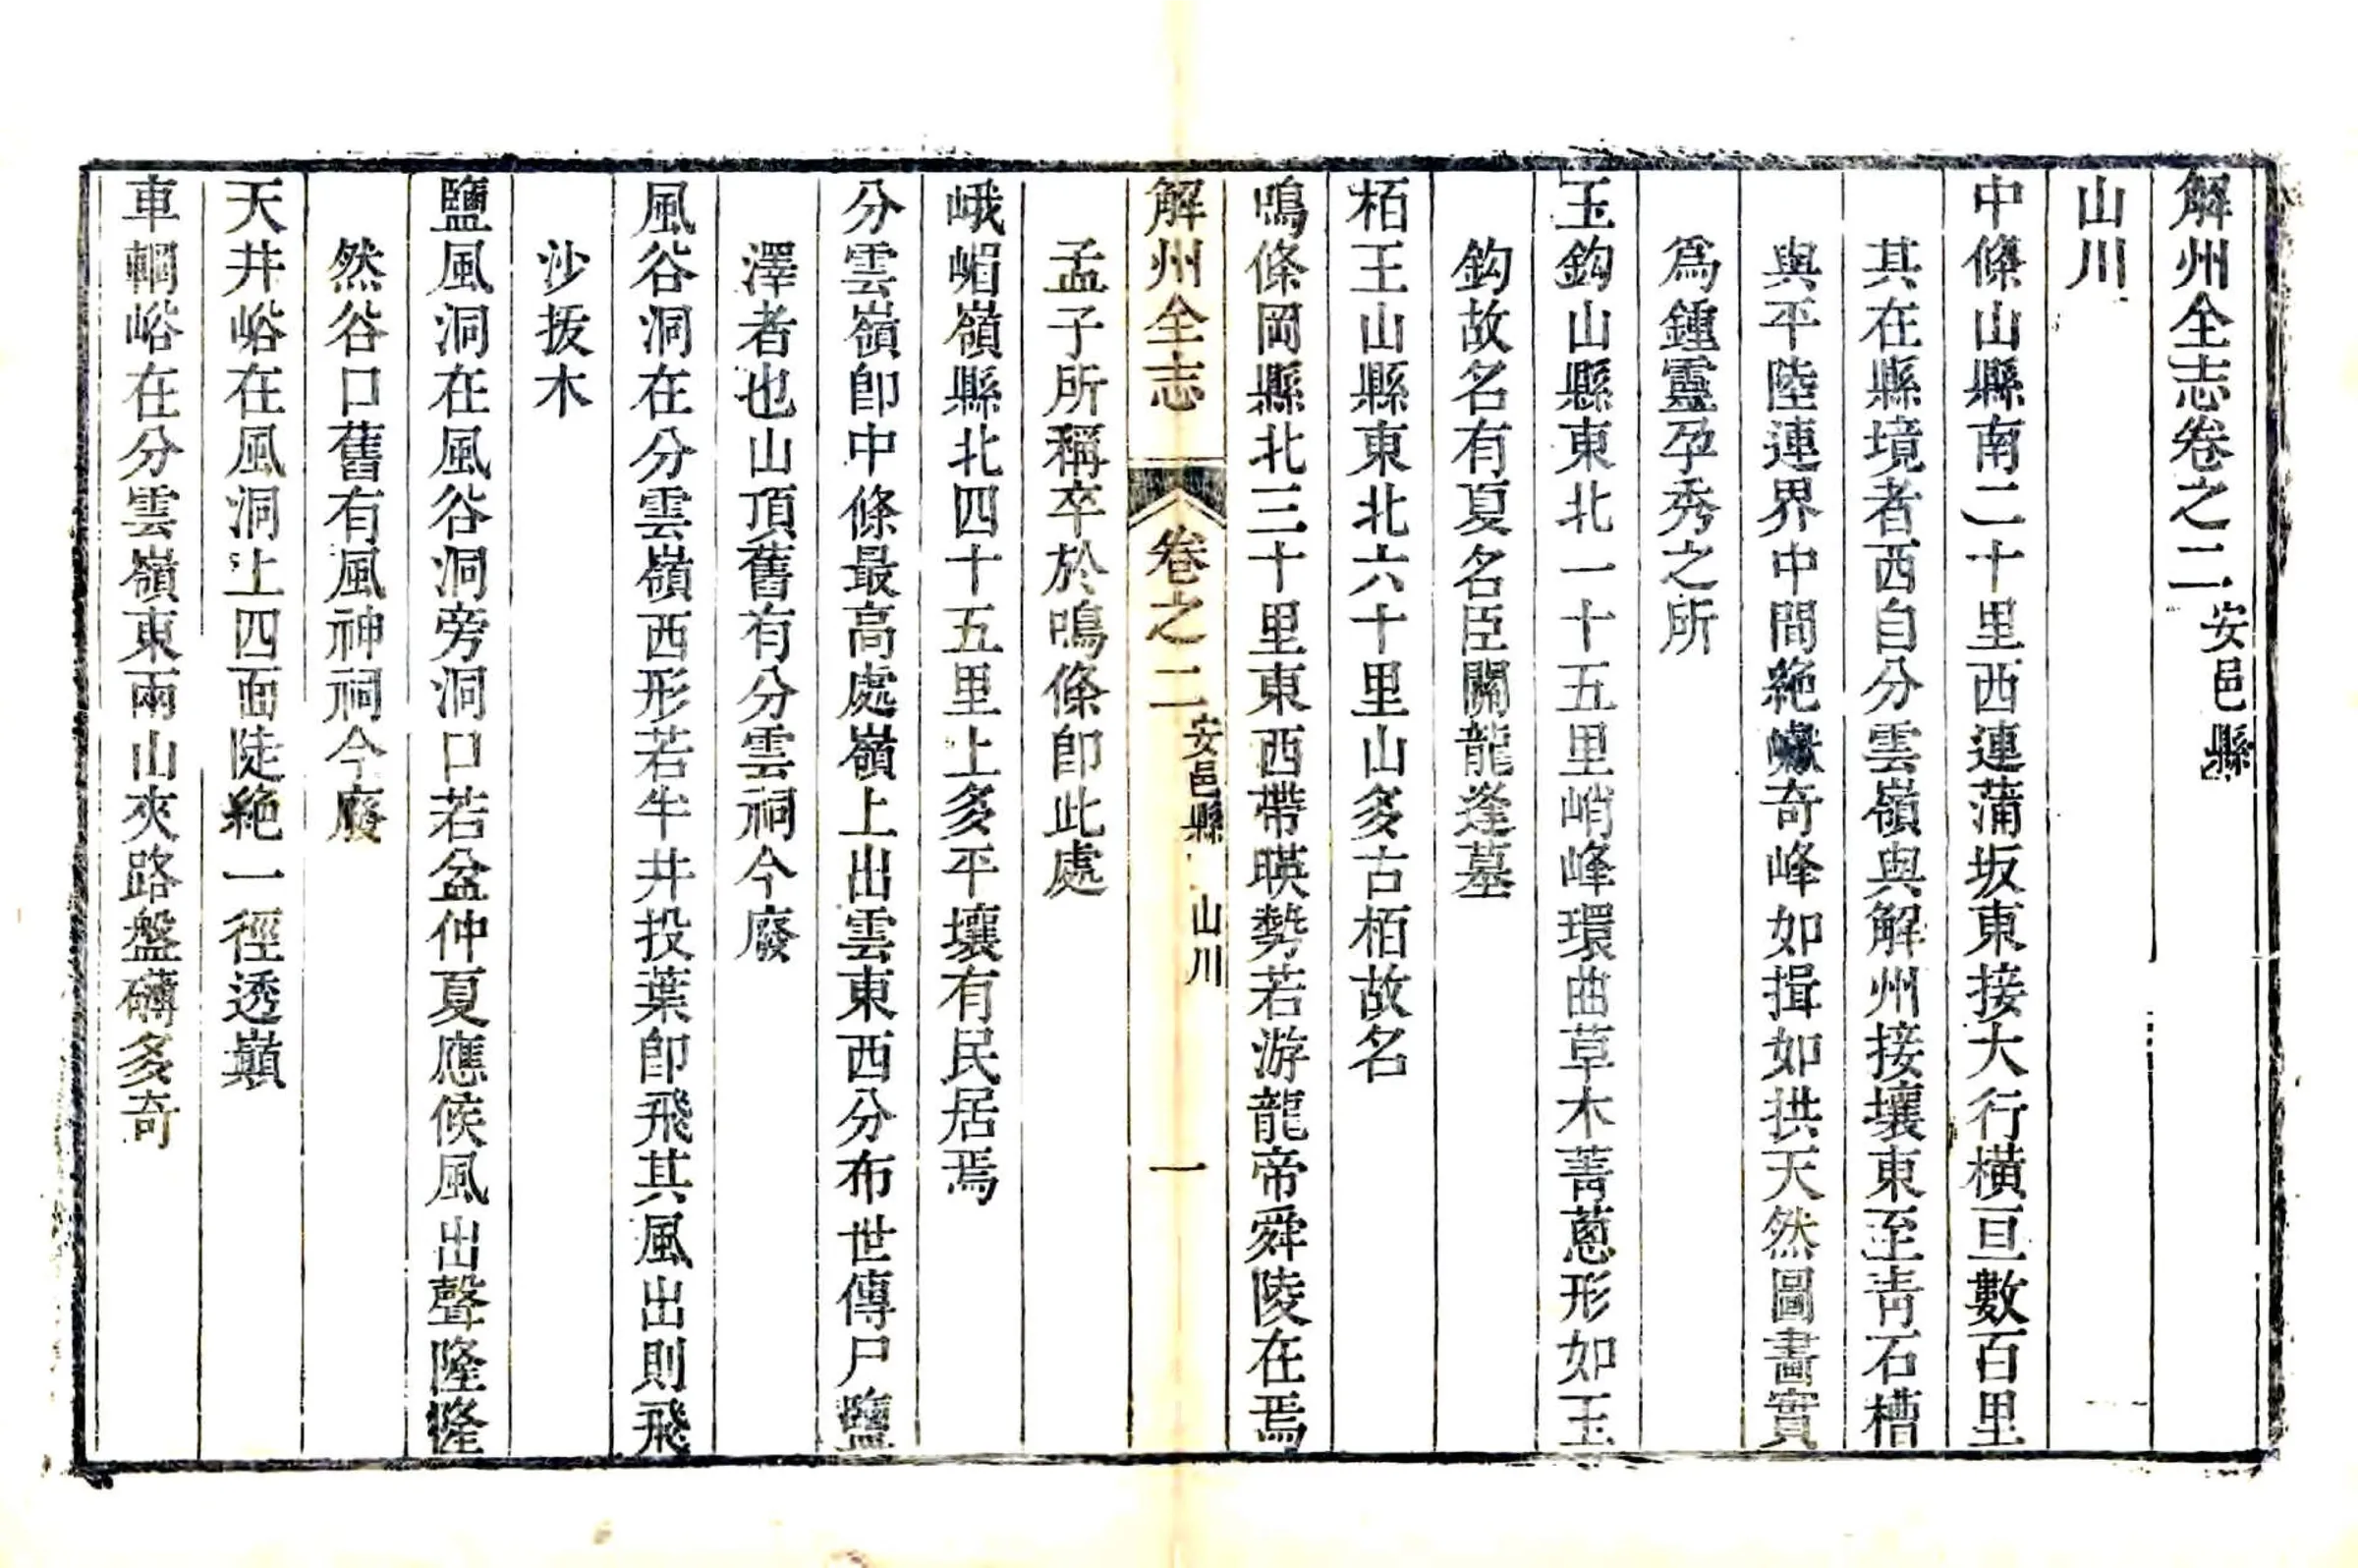 解州全志卷之二安邑縣
山川
中條山縣南二十里西連蒲坂東接大行橫亘數百里
其在縣境者西自分雲嶺與解州接壤東至靑石槽
與平陸連界中間絶巘奇峰如揖如拱天然圖畵實
爲鍾靈孕秀之所
玉鈎山縣東北一十五里峭峰環曲草木菁蔥形如玉
鈎故名有夏名臣關龍逄墓
栢王山縣東北六十里山多古栢故名
鳴條岡縣北三十里東西帶暎勢若游龍帝舜陵在焉
解州全志 卷之二安邑縣 山川 一
孟子所稱卒於鳴條卽此處
峨嵋嶺縣北四十五里上多平壤有民居焉
分雲嶺卽中條最高處嶺上出雲東西分布世傳尸鹽
澤者也山頂舊有分雲祠今廢
風谷洞在分雲嶺西形若牛井投葉卽飛其風出則飛
沙拔木
鹽風洞在風谷洞旁洞口若盆仲夏應候風出聲隆隆
然谷口舊有風神祠今廢
天井峪在風洞上四面陡絶一徑透巔
車輞峪在分雲嶺東兩山夾路盤礴多奇